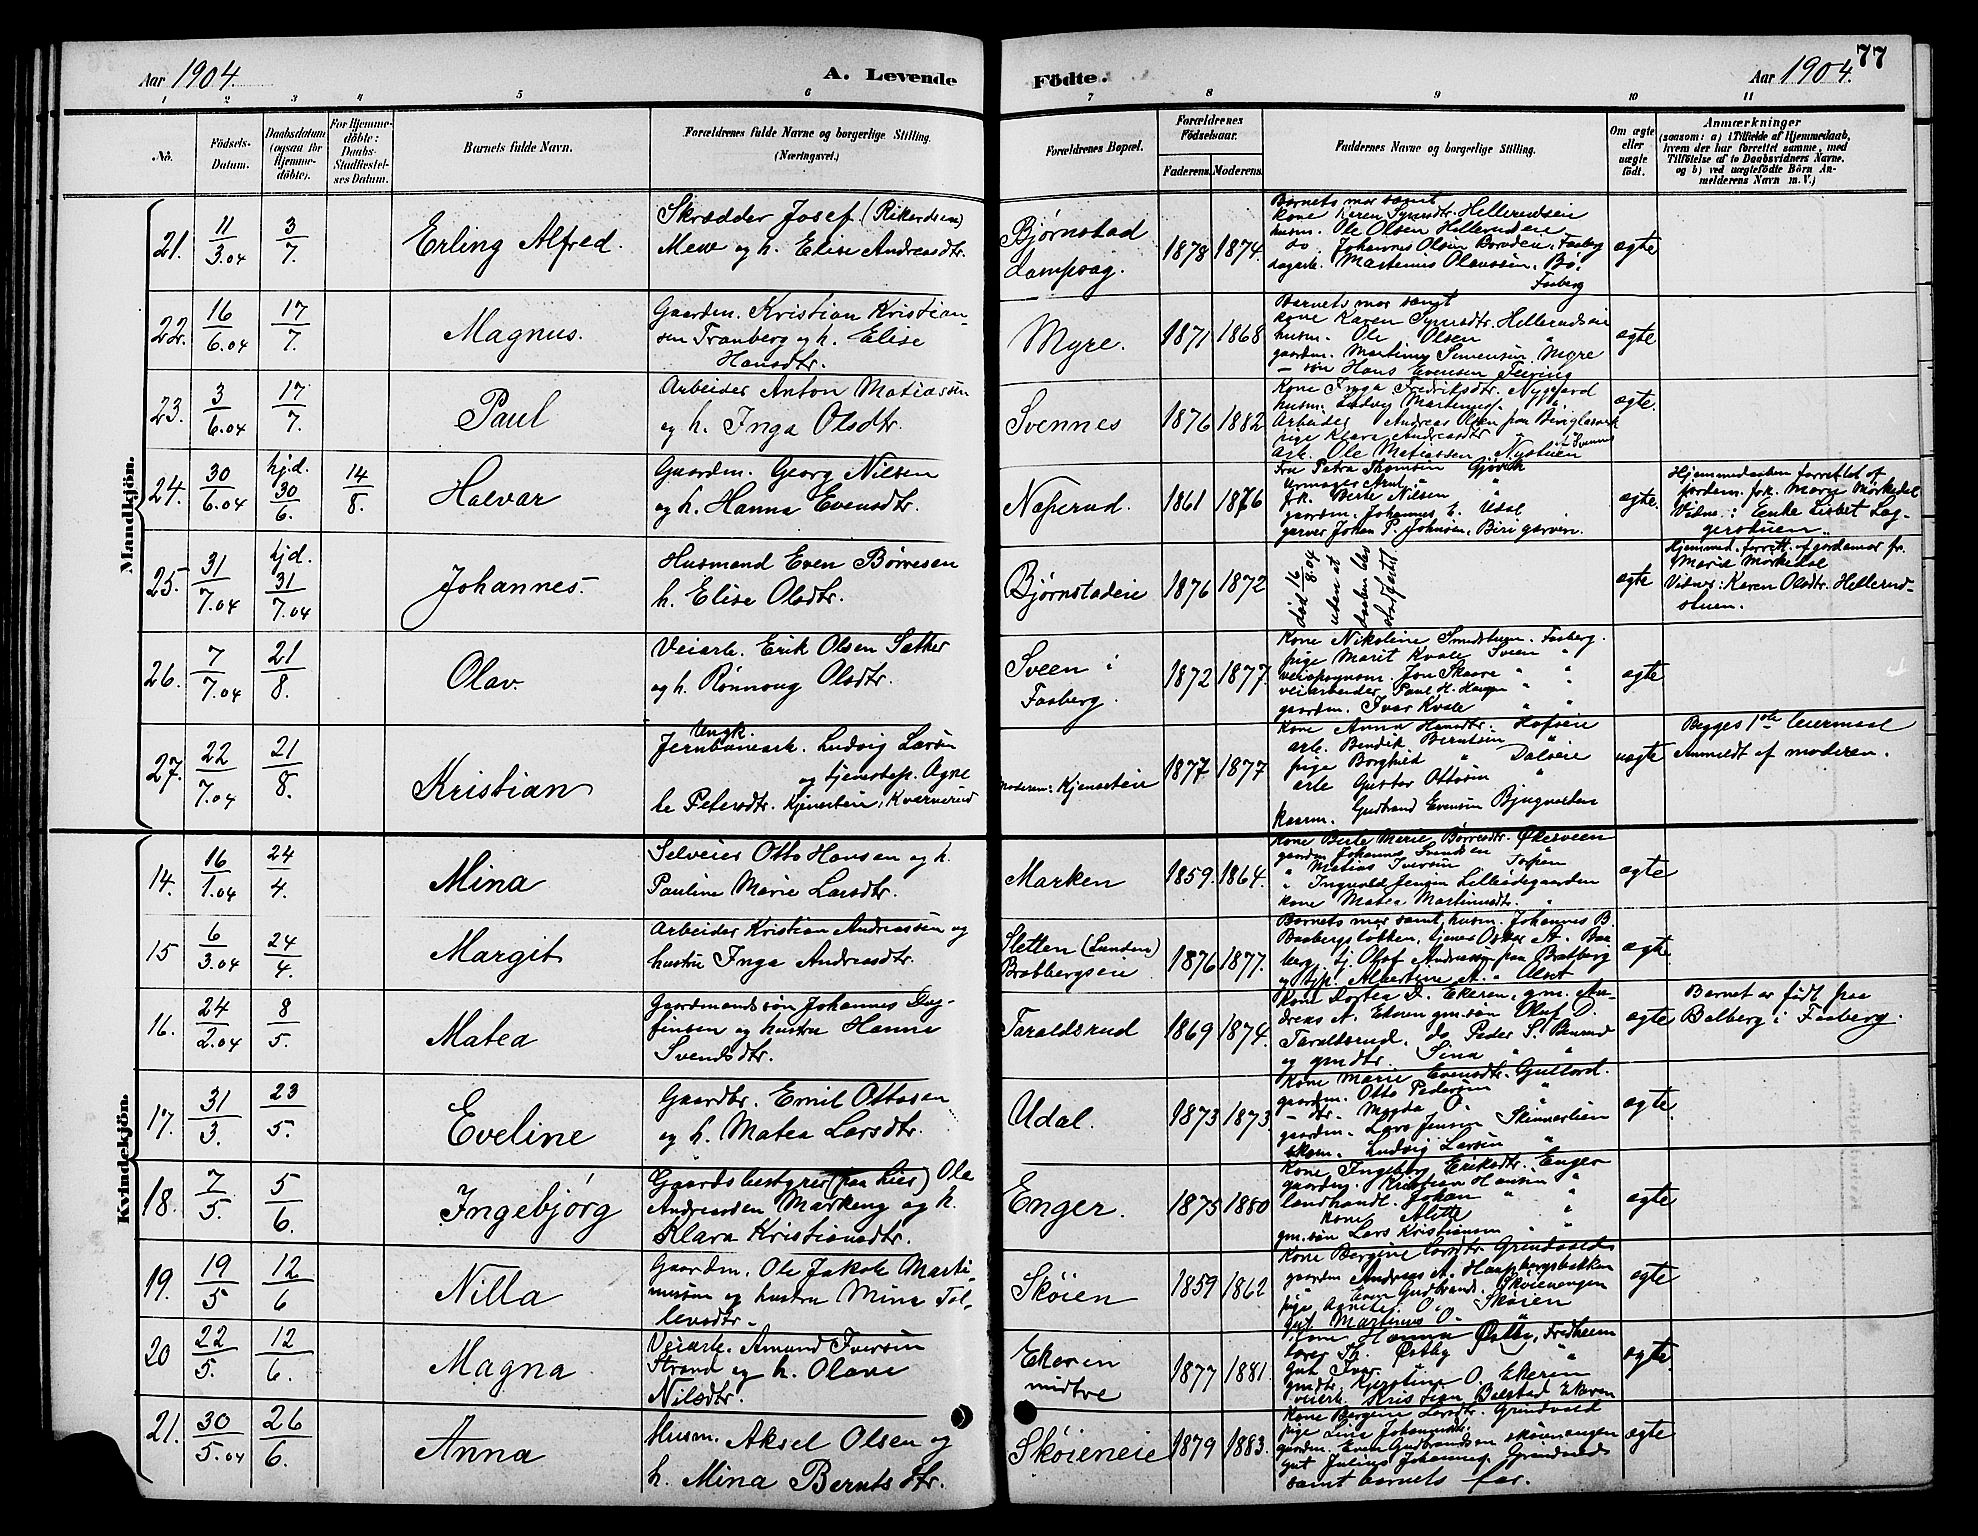 Aar 1904. A. Levende Födte. Aar 1904. 77
1 2 3 4 5 6 7 8 9 10 11
No. Födsels-Datum. Daabsdatum (ogsaa for Hjemme-döbte). For Hjemme-döbte: Daabs-Stadfæstel-ses Datum. Barnets fulde Navn. Forældrenes fulde Navne og borgerlige Stilling. (Næringsvei.) Forældrenes Bopæl. Forældrenes Födselsaar. Faderens. Moderens. Faddernes Navne og borgerlige Stilling. Om ægte eller uægte födt. Anmærkninger (saasom: a) i Tilfælde af Hjemmedaab, hvem der har forrettet samme, med Tilföielse af to Daabsvidners Navne. og b) ved uægtefödte Börn An-melderens Navn m. V.)
Mandkjön.
21. 11/3.04 3/7. Erling Alfred. Skrædder Josef (Rikardsen)
Mew og h. Elise Andreasdtr. Bjørnstad
dampsag. 1878 1874. Barnets mor samt
kone Karen Syversdtr. Hellerudseie
husm. Ole Olsen Hellerudeie
do Johannes Olsen Faaberg
dagarb. Martinius Olaussen, Bø.
Faaberg ægte
22. 16/6.04 17/7. Magnus. Gaardm. Kristian Kristian-
sen Tranberg og h. Elise
Hansdtr. Myre. 1871 1868 Barnets mor samt
kone Karen Syversdtr. Hellerudseie
husm. Ole Olsen "
gaardm. Martinus Simensen Myre
– søn Hans Evensen ægte
23. 3/6.04 17/7. Paul Arbeider Anton Matiassen
og h. Inga Olsdtr. Svennes 1876 1882 Kone Inga Fredriksdtr. Nygaard
husm. Ludvig Martinus. "
Arbeider Andreas Olsen paa Biriglasverk
pige Klara Andreasdtr
Arb. Ole Matiassen. Nystuen ægte.
24. 30/6.04 hj.d. 30/6. 14/8. Halvar Gaardm. Georg Nilsen
og h. Hanna Evensdtr. Næperud. 1861 1876 Fru Petra Thomsen Gjøvik
Urmager Arnt "
frk. Berte Nilsen "
gaardm. Johannes E. Udal
garver Johan P. Johnsen, Biri garveri. ægte. Hjemmedaaben forrettet af
jordem. frk. Marie Mørkedal
Vidne: Enke Lisbet Lag-
gerstuen
25. 31/7.04 hj.d. 31/7.04 Johannes. Husmand Even Børresen
h. Elise Olsdtr. Bjørnstadeie 1876 1872 død 16/8.04
uden at
daaben blev
stadfæstet ægte Hjemmed. forrett. af jordemor fr.
Marie Mørkedal
Vidner: Karen Olsdtr. Hellerud-
stuen.
26. 7/7.04 21/8. Olav. Veiarb. Erik Olsen Sæther
og h. Rønnoug Olsdtr. Sveen i
Faaberg. 1872 1877. Kone Nikoline Smedstuen. Faaberg.
pige Marit Kvale Sveen "
veiopsynsm. Jon Skaare " "
veiarbeider Paul H. Haugen " "
gaardm. Ivar Kvale " " ægte
27. 22/7.04 21/8. Kristian Ungk.
Jernbanearb. Ludvig Larsen
og tjenestep. Agne
te Petersdtr. Kjenseteie, Kvernerud Moderen: Kjenseteie 1877 1877 Kone Anna Hansdtr. Hofseie
arb. Bendik Berntsen "
pige Borghild " Dalseie
arb Gustav Ottosen "
kaarm. Gudbrand Evensen uægte Begges 1ste leiermaal
Anmeldt af moderen.
Kvindekjön.
14. 16/1.04 24/4. Mina Selveier Otto Hansen og h.
Pauline Marie Larsdtr. Marken 1859. 1864. Kone Berte Marie Børresdtr. Økersveen
gaardm Johannes Svendsen "
" Matias Iversen
" Ingvald Jensen Lillebødegaarden
kone Matea Martinusdtr. " ægte
15 6/3.04 24/4. Margit Arbeider Kristian Andreassen og
hustru Inga Andreasdtr. Sletten (Lunden)
Bratbergseie 1876 1877. Barnets mor samt, husm. Johannes B.
tjener Oskar A. Brat
berg, tj. Olaf Andreassen paa Bratberg
og tjp. Albertine A. " Olset ægte.
16. 24/2.04 8/5. Matea Gaardmandssøn Johannes Dag-
finsen og hustru Hanna
Svendsdtr. Taraldsrud 1869 1874. Kone Dortea D. Ekeren, gm. An-
dreas A. Ekeren gm.søn Oluf D.
Taraldsrud. do Peder S.
og gmdtr. Sina " " ægte Barnet er født paa
Balberg i Faaberg.
17. 31/3. 23/5. Eveline Gaardbr. Emil Ottosen
og h. Matea Larsdtr. Udal. 1873 1873 Kone Marie Evensdtr. Gullord.
gaardm. Otto Pedersen "
– dtr. Magda O. "
gaardm. Lars Jensen Skinnerlien
Ludvig Larsen " ægte
18. 7/5. 5/6. Ingebjørg Gaardsbestyrer (paa Lier) Ole
Andreassen Markeng og h.
Klara Kristiansdtr. Enger. 1875 1880 Kone Ingeborg Eriksdtr. Enger
gaardm. Kristian Hansen "
landhandl. Johan " "
kone Mette "
gm.søn Lars Kristiansen " " ægte
19. 19/5 12/6 Nilla Gaardm. Ole Jakob Marti-
nusen og hustru Mina Tol-
levsdtr. Skøien 1859 1862 Kone Bergine Larsdtr. Grindvold
gaardm Andreas A. Haugbergsbakken
" Even Gudbrands. Skøienengen
pige Agnete O. Skøien
gut. Martinus O. " ægte
20 22/5. 12/6. Magna Veiarb. Amund Iversen
Strand og h. Olave
Nilsdtr. Ekeren
midtre 1877 1881. Kone Hanna Østby, Fredheim
lærer Th. Østby "
gut Ivar
gmdtr. Kjerstine O. Ekeren
veiarb. Kristian Balstad Ekeren ægte.
21. 30/5.04 26/6. Anna Husm. Aksel Olsen og
h. Mina Berntsdtr. Skøieneie 1879 1883. Kone Bergine Larsdtr. Grindvold
pige Lina Johannesdtr.
gaardm. Even Gudbrandsen Skøienengen
gut Julius Johannes. Grindvold
samt barnets far. ægte